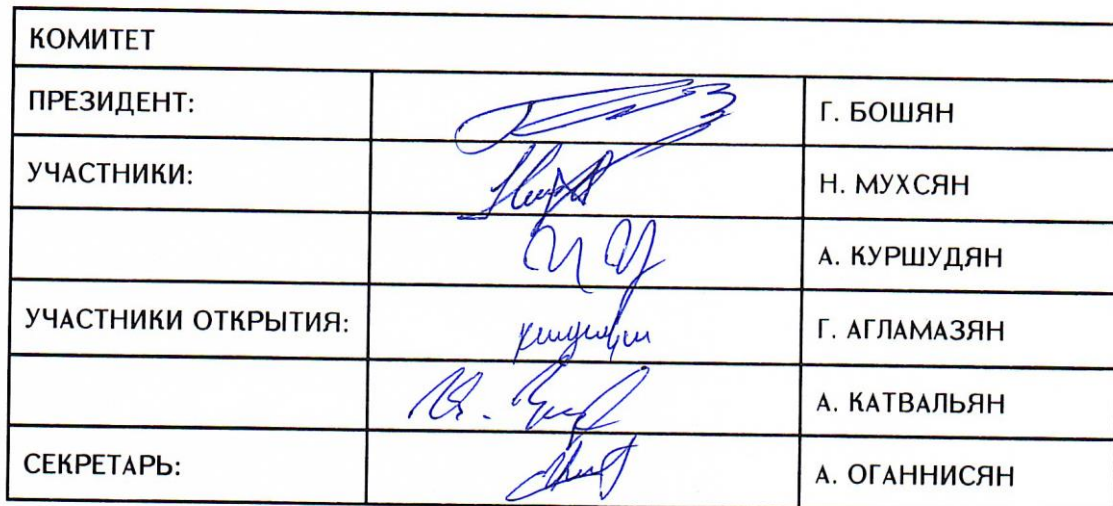 КОМИТЕТ
ПРЕЗИДЕНТ: Г. БОШЯН
УЧАСТНИКИ: Н. МУХСЯН
А. КУРШУДЯН
УЧАСТНИКИ ОТКРЫТИЯ: Г. АГЛАМАЗЯН
А. КАТВАЛЬЯН
СЕКРЕТАРЬ: А. ОГАННИСЯН